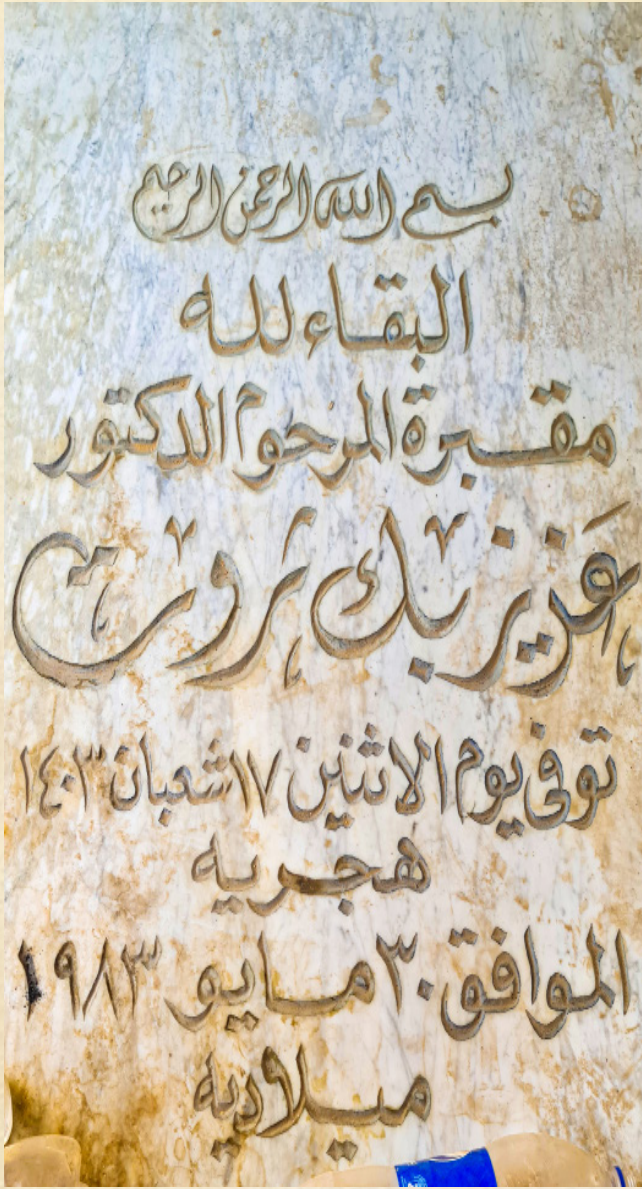 بسم الله الرحمن الرحيم
البقاء لله
مقبرة المرحوم الدكتور
عزيز بك ثروت
توفى يوم الاثنين ١٧ شعبان ١٤٠٣
هجريه
الموافق ٣٠ مايو ١٩٨٣
ميلاديه